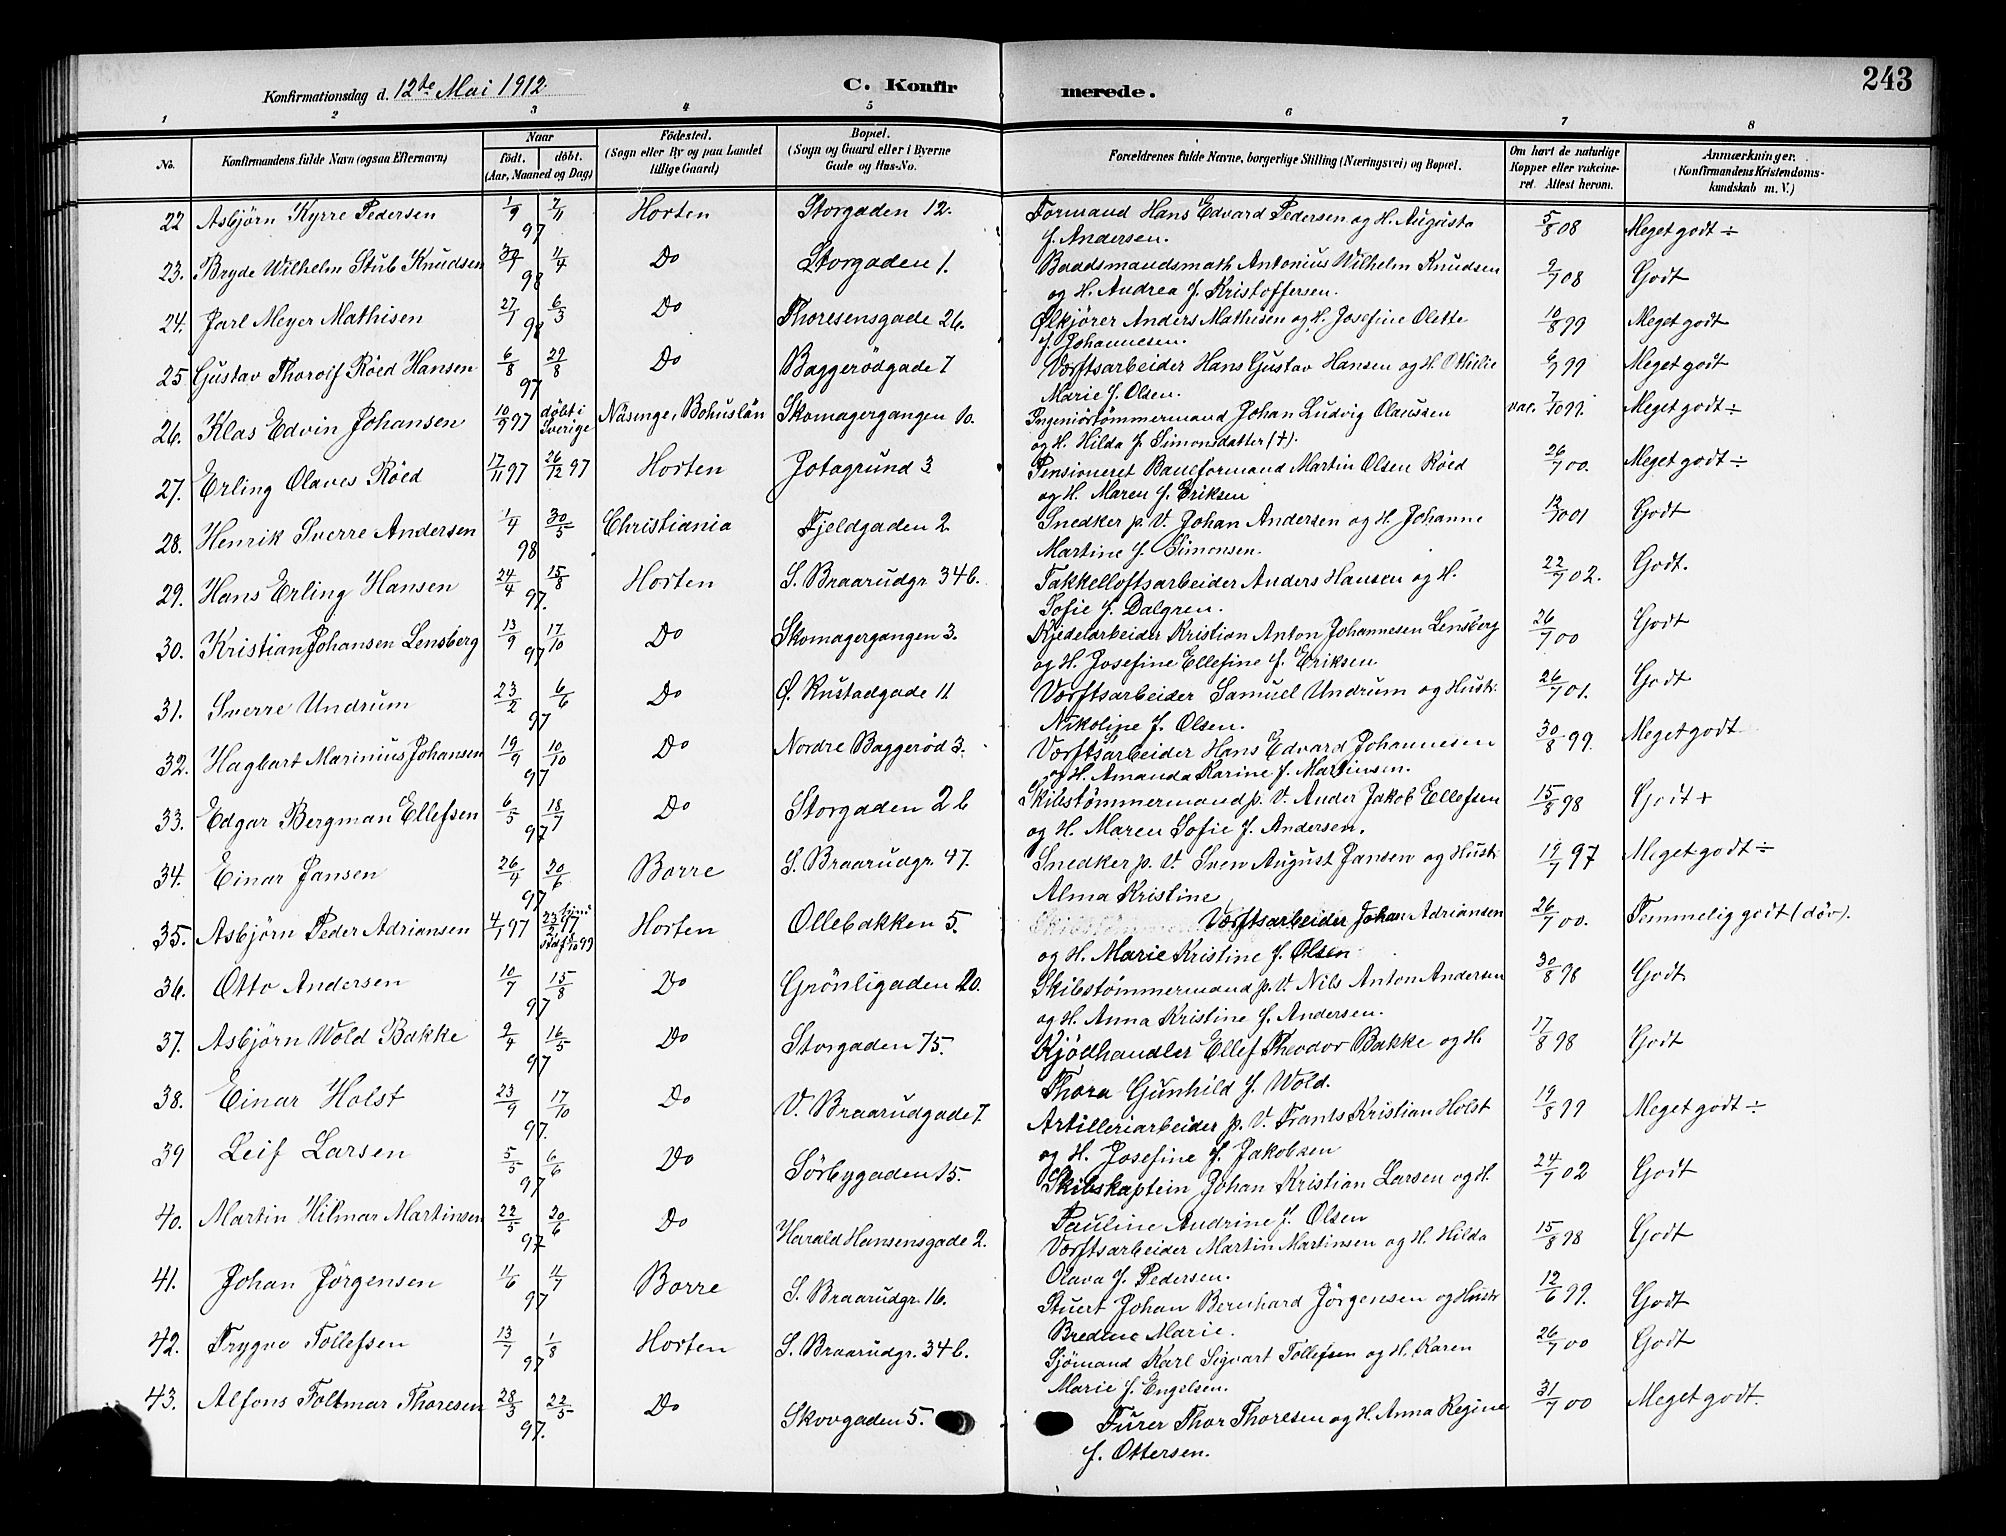 Konfirmationsdag d. 12te Mai 1912. C. Konfirmerede. 243
1 2 3 4 5 6 7 8
No. Konfirmandens fulde Navn (ogsaa Efternavn) Naar født. døbt. (Aar, Maaned og Dag) Fødested. (Sogn eller By og paa Landet tillige Gaard) Bopæl. (Sogn og Gaard eller i Byerne Gade og Hus-No. Forældrenes fulde Navne, borgerlige Stilling (Næringsvei) og Bopæl. Om havt de naturlige Kopper eller vakcineret. Attest herom. Anmærkninger. (Konfirmandens Kristendomskundskab m. V.)
22 Asbjørn Kyrre Pedersen 1/9 97 7/11 Horten Storgaden 12. Formand Hans Edvard Pedersen og H. Augusta
f. Andersen. 5/8 08 Meget godt ÷
23. Bryde Wilhelm Stub Knudsen 30/1 98 11/4 Do Storgaden 1. Baadsmandsmath Antonius Wilhelm Knudsen
og H. Andrea f. Kristoffersen. 9/7 08 Godt
24. Jarl Meyer Mathisen 27/1 98 6/3 Do Thoresensgade 26. Ølkjører Anders Mathisen og H. Josefine Olette
f. Johannesen. 10/8 99 Meget godt
25 Gustav Thorolf Røed Hansen 6/8 97 29/8 Do Baggerødgade 7 Værftsarbeider Hans Gustav Hansen og H. Othilie
Marie f. Olsen. 6/9 99 Meget godt
26. Klas Edvin Johansen 10/9 97 døbt i Sverige Näsinge, Bohuslän Skomagergangen 10. Ingeniörtømmermand Johan Ludvig Olaussen
og H. Hilda f. Simonsdatter (†). vac. 7/10 99. Meget godt ÷
27. Erling Olaves Røed 17/11 97 26/12 97 Horten Jotagrund 3 Pensioneret Baneformand Martin Olsen Røed
og H. Maren f. Eriksen 26/7 00. Meget godt ÷
28. Henrik Sverre Andersen 1/4 98 30/5 Christiania Fjeldgaden 2. Snedker p. V. Johan Andersen og H. Johanne
Martine f. Simonsen. 13/10 01 Godt
29. Hans Erling Hansen 24/4 97. 15/8 Horten S. Braarudgr. 34 b. Takkelloftsarbeider Anders Hansen og H.
Sofie f. Dalgren. 22/7 02. Godt.
30. Kristian Johansen Lensberg 13/9 97 17/10 Do Skomagergangen 3. Kjedelarbeider Kristian Anton Johannesen Lensberg
og H. Josefine Ellefine f. Eriksen. 26/7 00 Godt
31. Sverre Undrum 23/2 97 6/6 Do Ø. Rustadgade 11 Værftsarbeider Samuel Undrum og Hustr.
Nikoline f. Olsen. 26/7 01. Godt
32. Hagbart Marinius Johansen 19/9 97 10/10 Do Nordre Baggerød 3. Værftsarbeider Hans Edvard Johannesen
og H. Amanda Karine f. Martinsen. 30/8 99. Meget godt
33. Edgar Bergman Ellefsen 6/5 97 18/7 Do Storgaden 2 b Skibstømmermand p. V. Ander Jakob Ellefsen
og H. Maren Sofie f. Andersen. 15/8 98 Godt +
34. Einar Jansen 26/4 97 20/6 Borre S. Braarudgr. 47. Snedker p. V. Sven August Jansen og Hustr.
Alma Kristine 19/7 97 Meget godt ÷
35. Asbjørn Peder Adriansen 4/1 97 23/2 97 Horten Ollebakken 5. Værftsarbeider Johan Adriansen
og H. Marie Kristine f. Olsen 26/7 00. Temmelig godt (døv).
36. Otto Andersen 10/7 97 15/8 Do Grönligaden 20. Skibstømmermand p. V. Nils Anton Andersen
og H. Anna Kristine f. Andersen. 30/8 98 Godt
37. Asbjørn Wold Bakke 2/4 97 16/5 Do Storgaden 75. Kjødhandler Ellef Theodor Bakke og H.
Thora Gunhild f. Wold. 17/8 98 Godt
38. Einar Holst 23/9 97. 17/10 Do V. Braarudgade 7. Artilleriarbeider p. V. Frants Kristian Holst
og H. Josefine f. Jakobsen 19/8 99 Meget godt ÷
39 Leif Larsen 5/5 97 6/6 Do Sörbygaden 15. Skibskaptein Johan Kristian Larsen og H.
Pauline Andrine f. Olsen 24/7 02 Godt
40. Martin Hilmar Martinsen 22/5 97 20/6 Do Harald Hansensgade 2. Værftsarbeider Martin Martinsen og H. Hilda
Olava f. Pedersen. 15/8 98 Godt
41. Johan Jörgensen 11/6 97 11/7 Borre S. Braarudgr. 16. Stuert Johan Bernhard Jörgensen og Hustr
Bredine Marie. 12/6 99. Godt
42. Trygve Tollefsen 13/7 97 1/8 Horten S. Braarudgr. 34 b. Sjømand Karl Sigvart Tollefsen og H. Karen
Marie f. Engelsen. 26/7 00 Godt
43. Alfons Foltmar Thoresen 28/3 97. 22/5 Do Skovgaden 5. Furer Thor Thoresen og H. Anna Regine
f. Ottersen. 31/7 00 Meget godt.